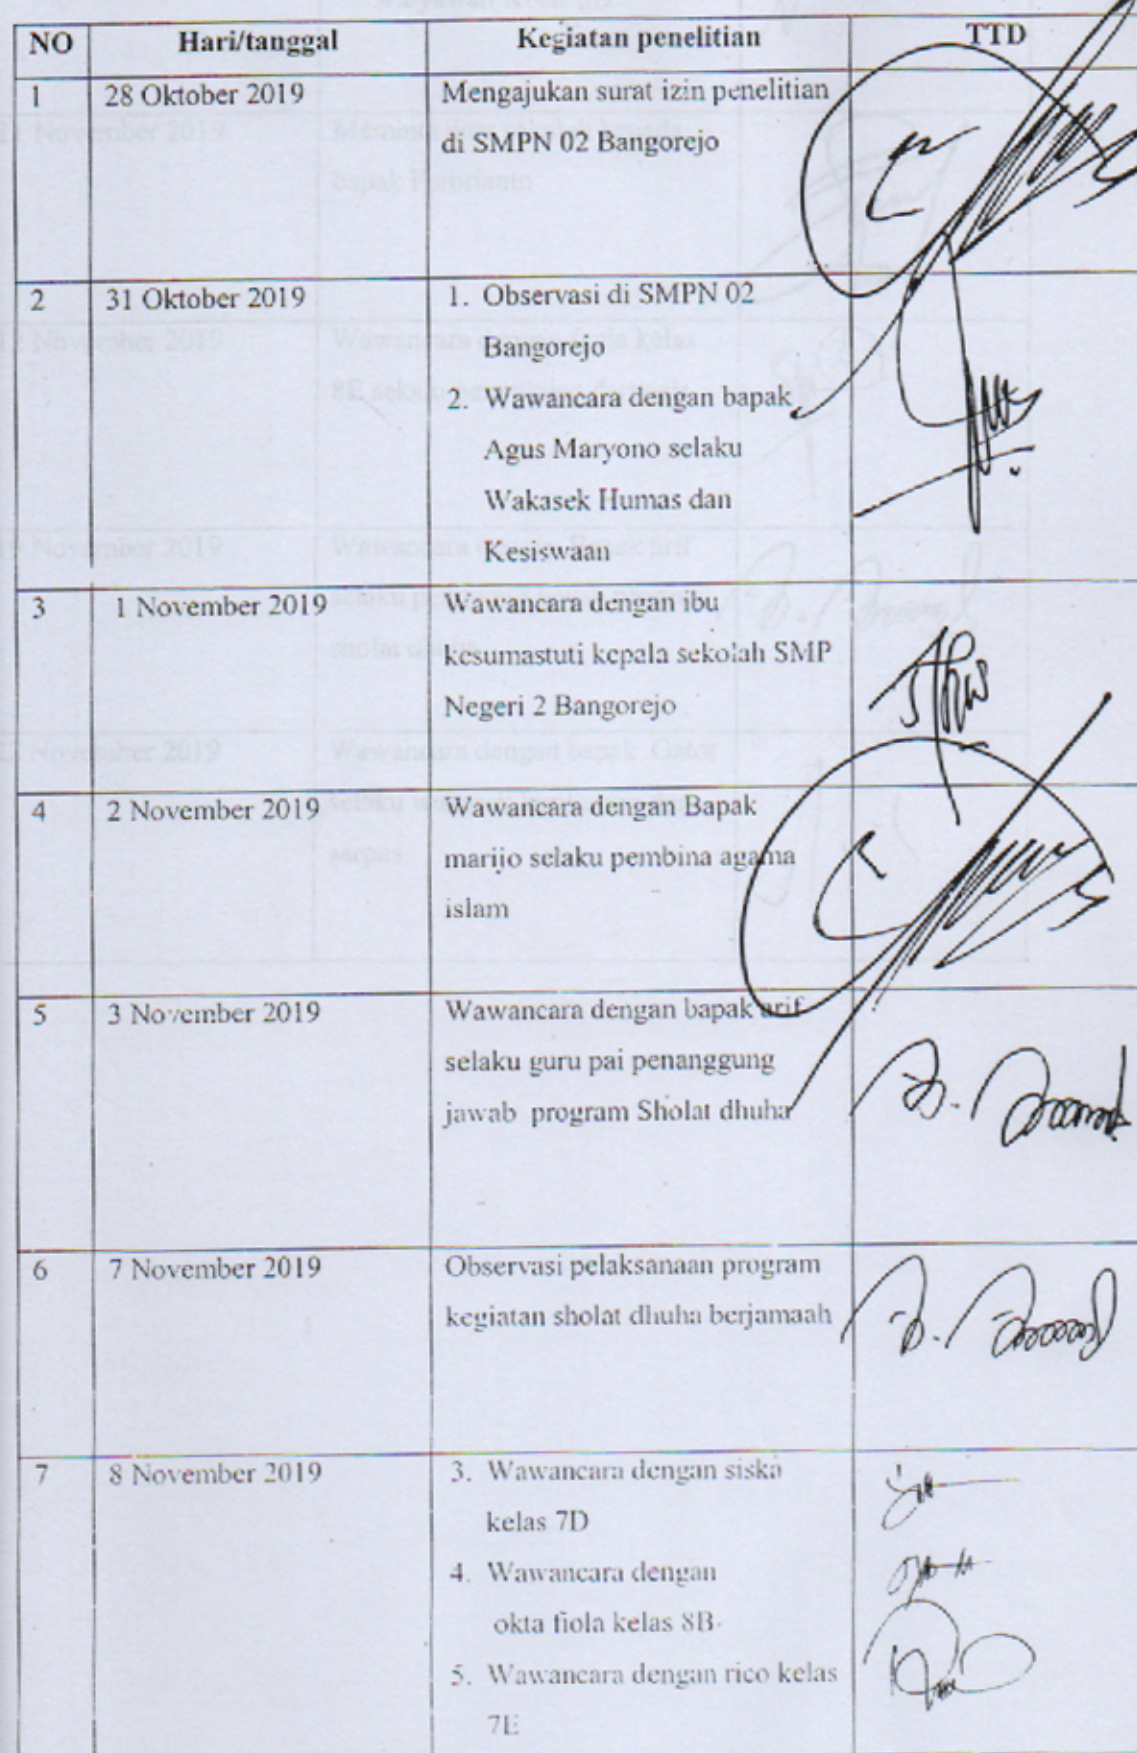 NO Hari/tanggal Kegiatan penelitian TTD
1 28 Oktober 2019 Mengajukan surat izin penelitian
di SMPN 02 Bangorejo
2 31 Oktober 2019 1. Observasi di SMPN 02
Bangorejo
2. Wawancara dengan bapak
Agus Maryono selaku
Wakasek Humas dan
Kesiswaan
3 1 November 2019 Wawancara dengan ibu
kesumastuti kepala sekolah SMP
Negeri 2 Bangorejo
4 2 November 2019 Wawancara dengan Bapak
marijo selaku pembina agama
islam
5 3 November 2019 Wawancara dengan bapak arif
selaku guru pai penanggung
jawab program Sholat dhuha
6 7 November 2019 Observasi pelaksanaan program
kegiatan sholat dhuha berjamaah
7 8 November 2019 3. Wawancara dengan siska
kelas 7D
4. Wawancara dengan
okta fiola kelas 8B
5. Wawancara dengan rico kelas
7E